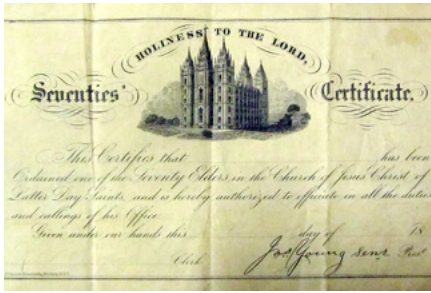 HOLINESS TO THE LORD,
Seventies' Certificate.
This Certifies that has been
Ordained one of the Seventy Elders in the Church of Jesus Christ of
Latter Day Saints, and is hereby authorized to officiate in all the duties
and callings of his Office.
Given under our hands this day of 18
Jos. Young Senr Prest
Clerk